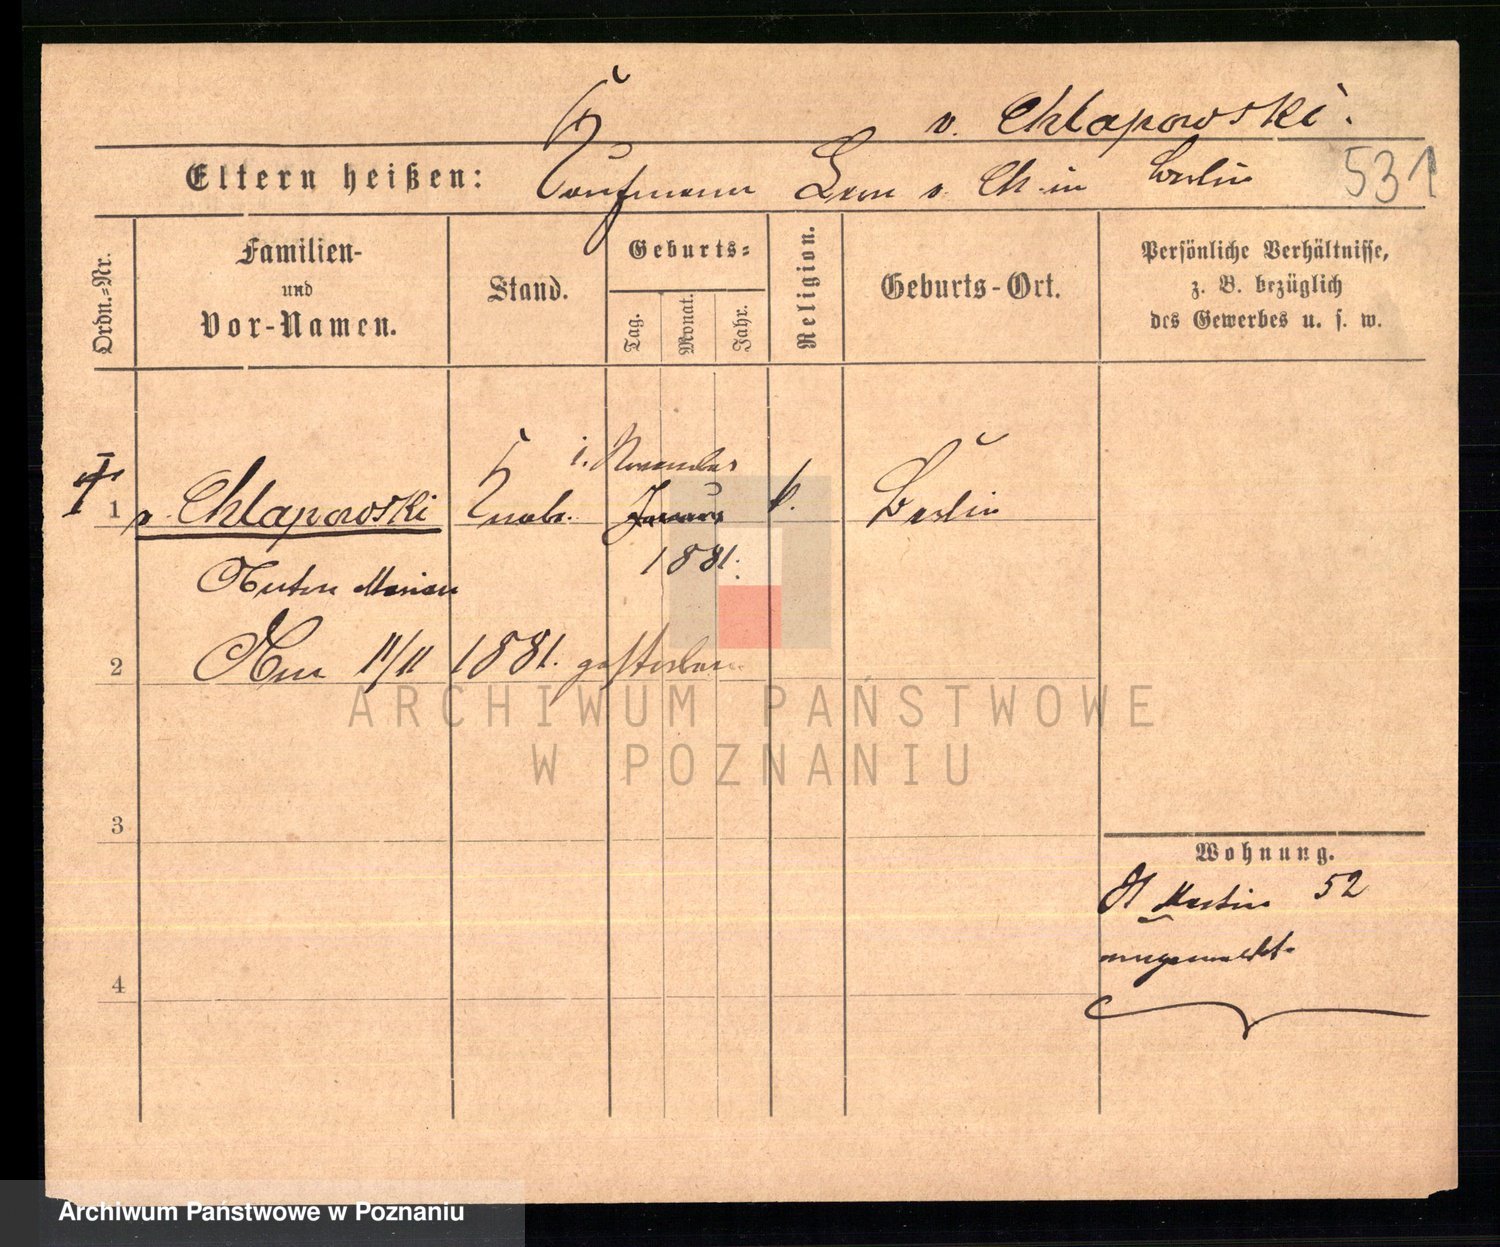 v. Chlapowski.
Eltern heißen: Kaufmann Leon v. Ch. in Berlin 531
Ordn.=Nr.
Familien-
und
Vor-Namen.
Stand.
Geburts=
Tag.
Monat.
Jahr.
Religion.
Geburts-Ort.
Persönliche Verhältnisse,
z. B. bezüglich
des Gewerbes u. s. w.
i. November
1 v. Chlapowski Knabe. Januar k. Berlin
1881.
Anton Marian
2 Am 11/11 1881. gestorben.
3
4
Wohnung.
St Martin 52
ARCHIWUM PAŃSTWOWE
W POZNANIU
Archiwum Państwowe w Poznaniu